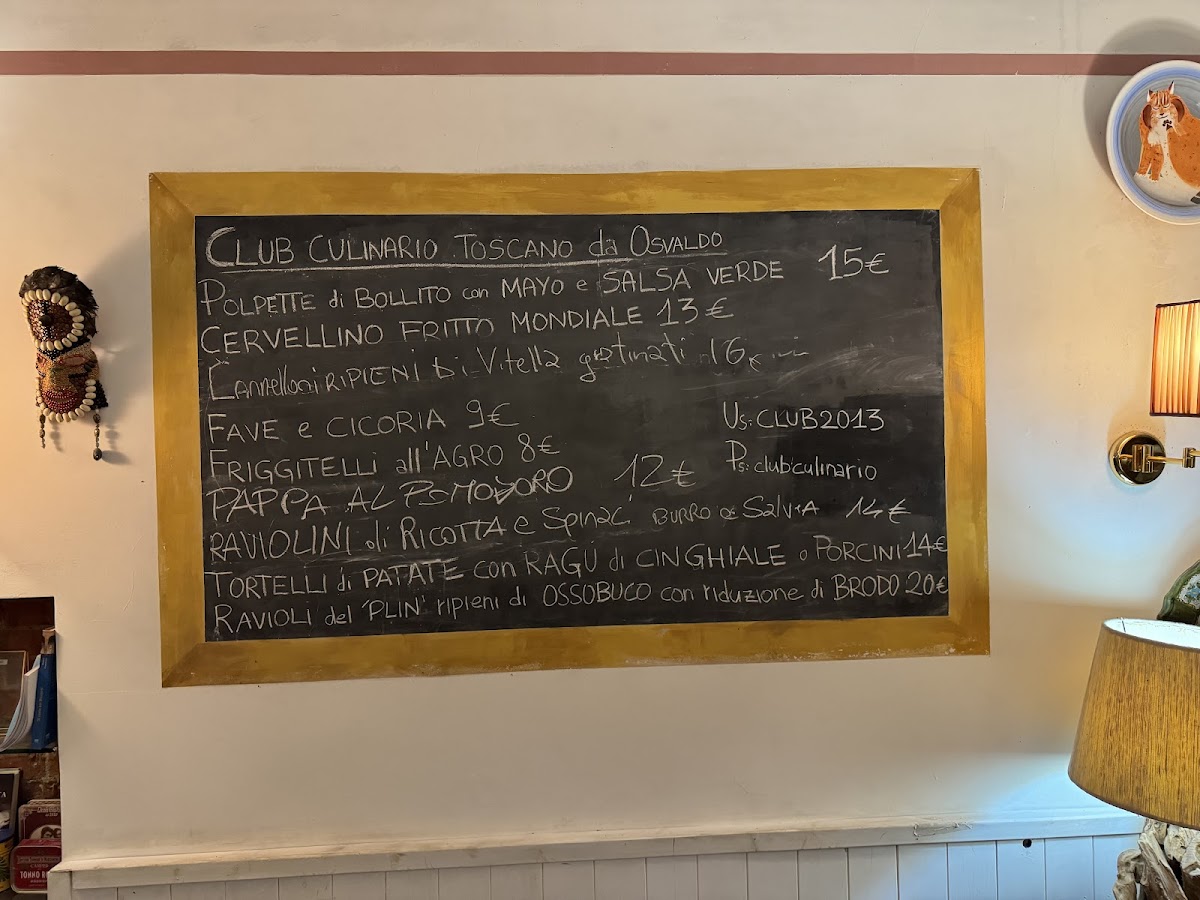 CLUB CULINARIO TOSCANO da OSVALDO
POLPETTE di BOLLITO con MAYO e SALSA VERDE 15€
CERVELLINO FRITTO MONDIALE 13€
Cannelloni RIPIENI Di Vitella gratinati 16€
FAVE e CICORIA 9€
FRIGGITELLI all'AGRO 8€
PAPPA AL POMODORO 12€
RAVIOLINI di RICOTTA e Spinaci BURRO e SalviA 14€
TORTELLI di PATATE con RAGÙ di CINGHIALE o PORCINI 14€
RAVIOLI del 'PLIN' ripieni di OSSOBUCO con riduzione di BRODO 20€
Us: CLUB2013
Ps: club'culinario
TONNO